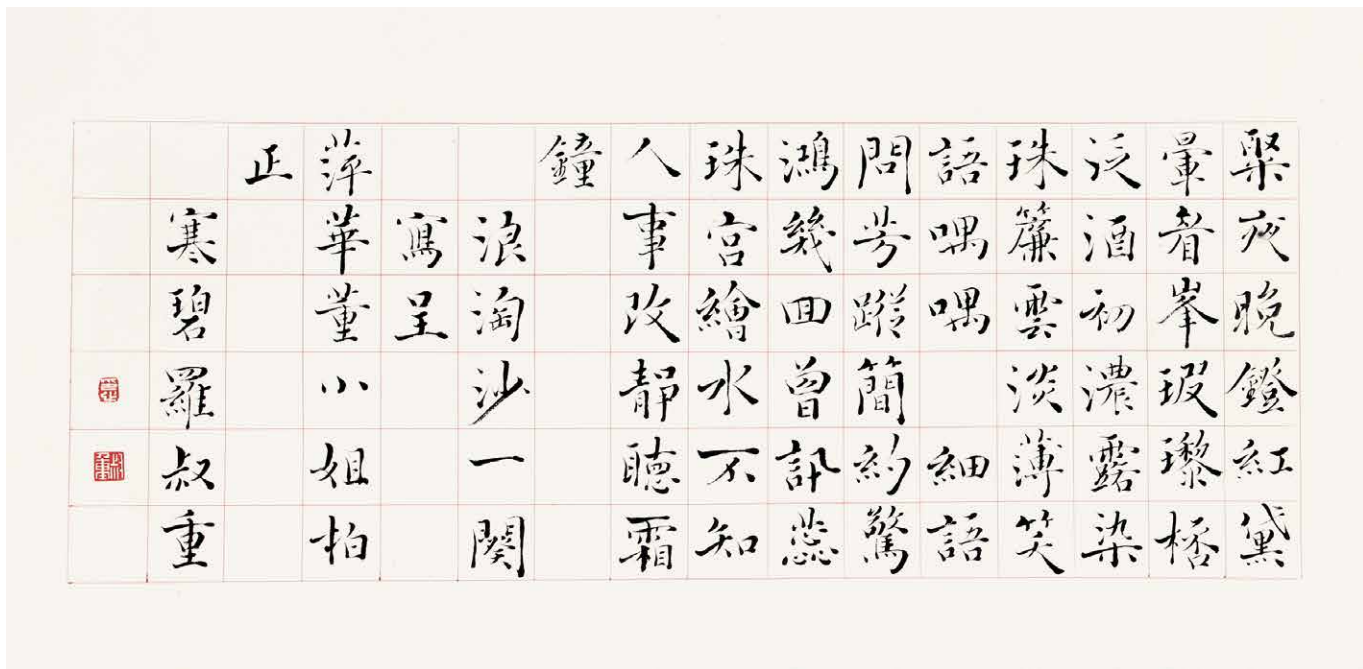 夜晚鐙紅黛
暈眉峯瑕瓈桮
泛酒初濃露染
珠簾雲淡薄笑
語喁喁 細語
問芳蹤簡約驚
鴻幾回曾訊蕊
珠宮繪水不知
人事改靜聽霜
鐘
浪淘沙一闋
寫呈
萍華董小姐拍
正
寒碧羅叔重
叔重